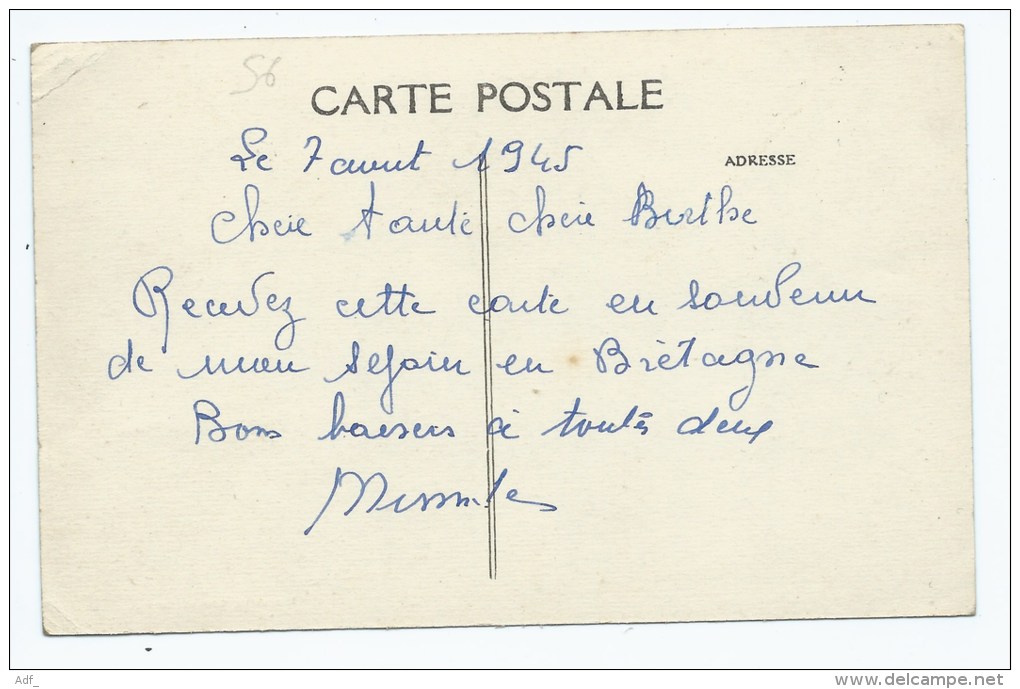 56
CARTE POSTALE
Le 7 aout 1945
ADRESSE
Chère tante chère Berthe
Recevez cette carte en souvenir
de mon sejour en Bretagne
Bons baisers à toutes deux
Adf_
www.delcampe.net